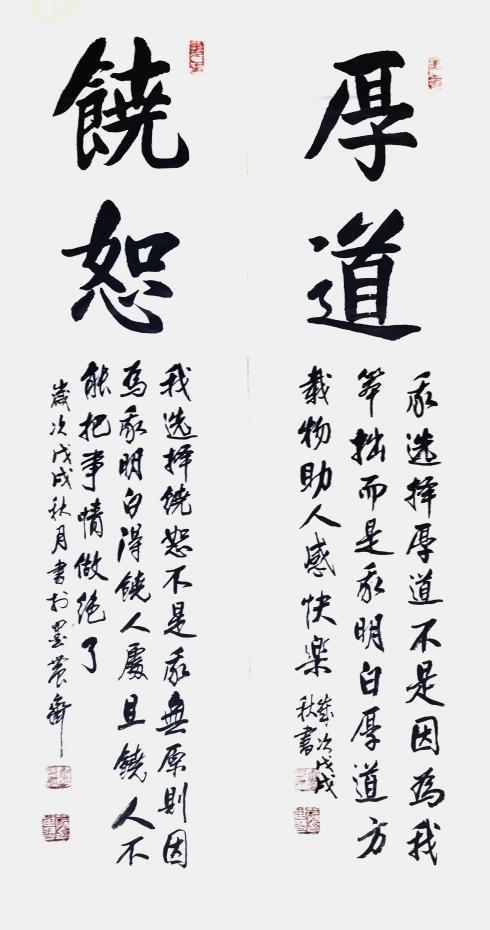 厚道
我选择厚道不是因為我
笨拙而是我明白厚道方
載物助人感快樂
歲次戊戌
秋書
饒恕
我选择饒恕不是我無原则因
為我明白得饒人處且饒人不
能把事情做绝了
歲次戊戌秋月書於墨農齋